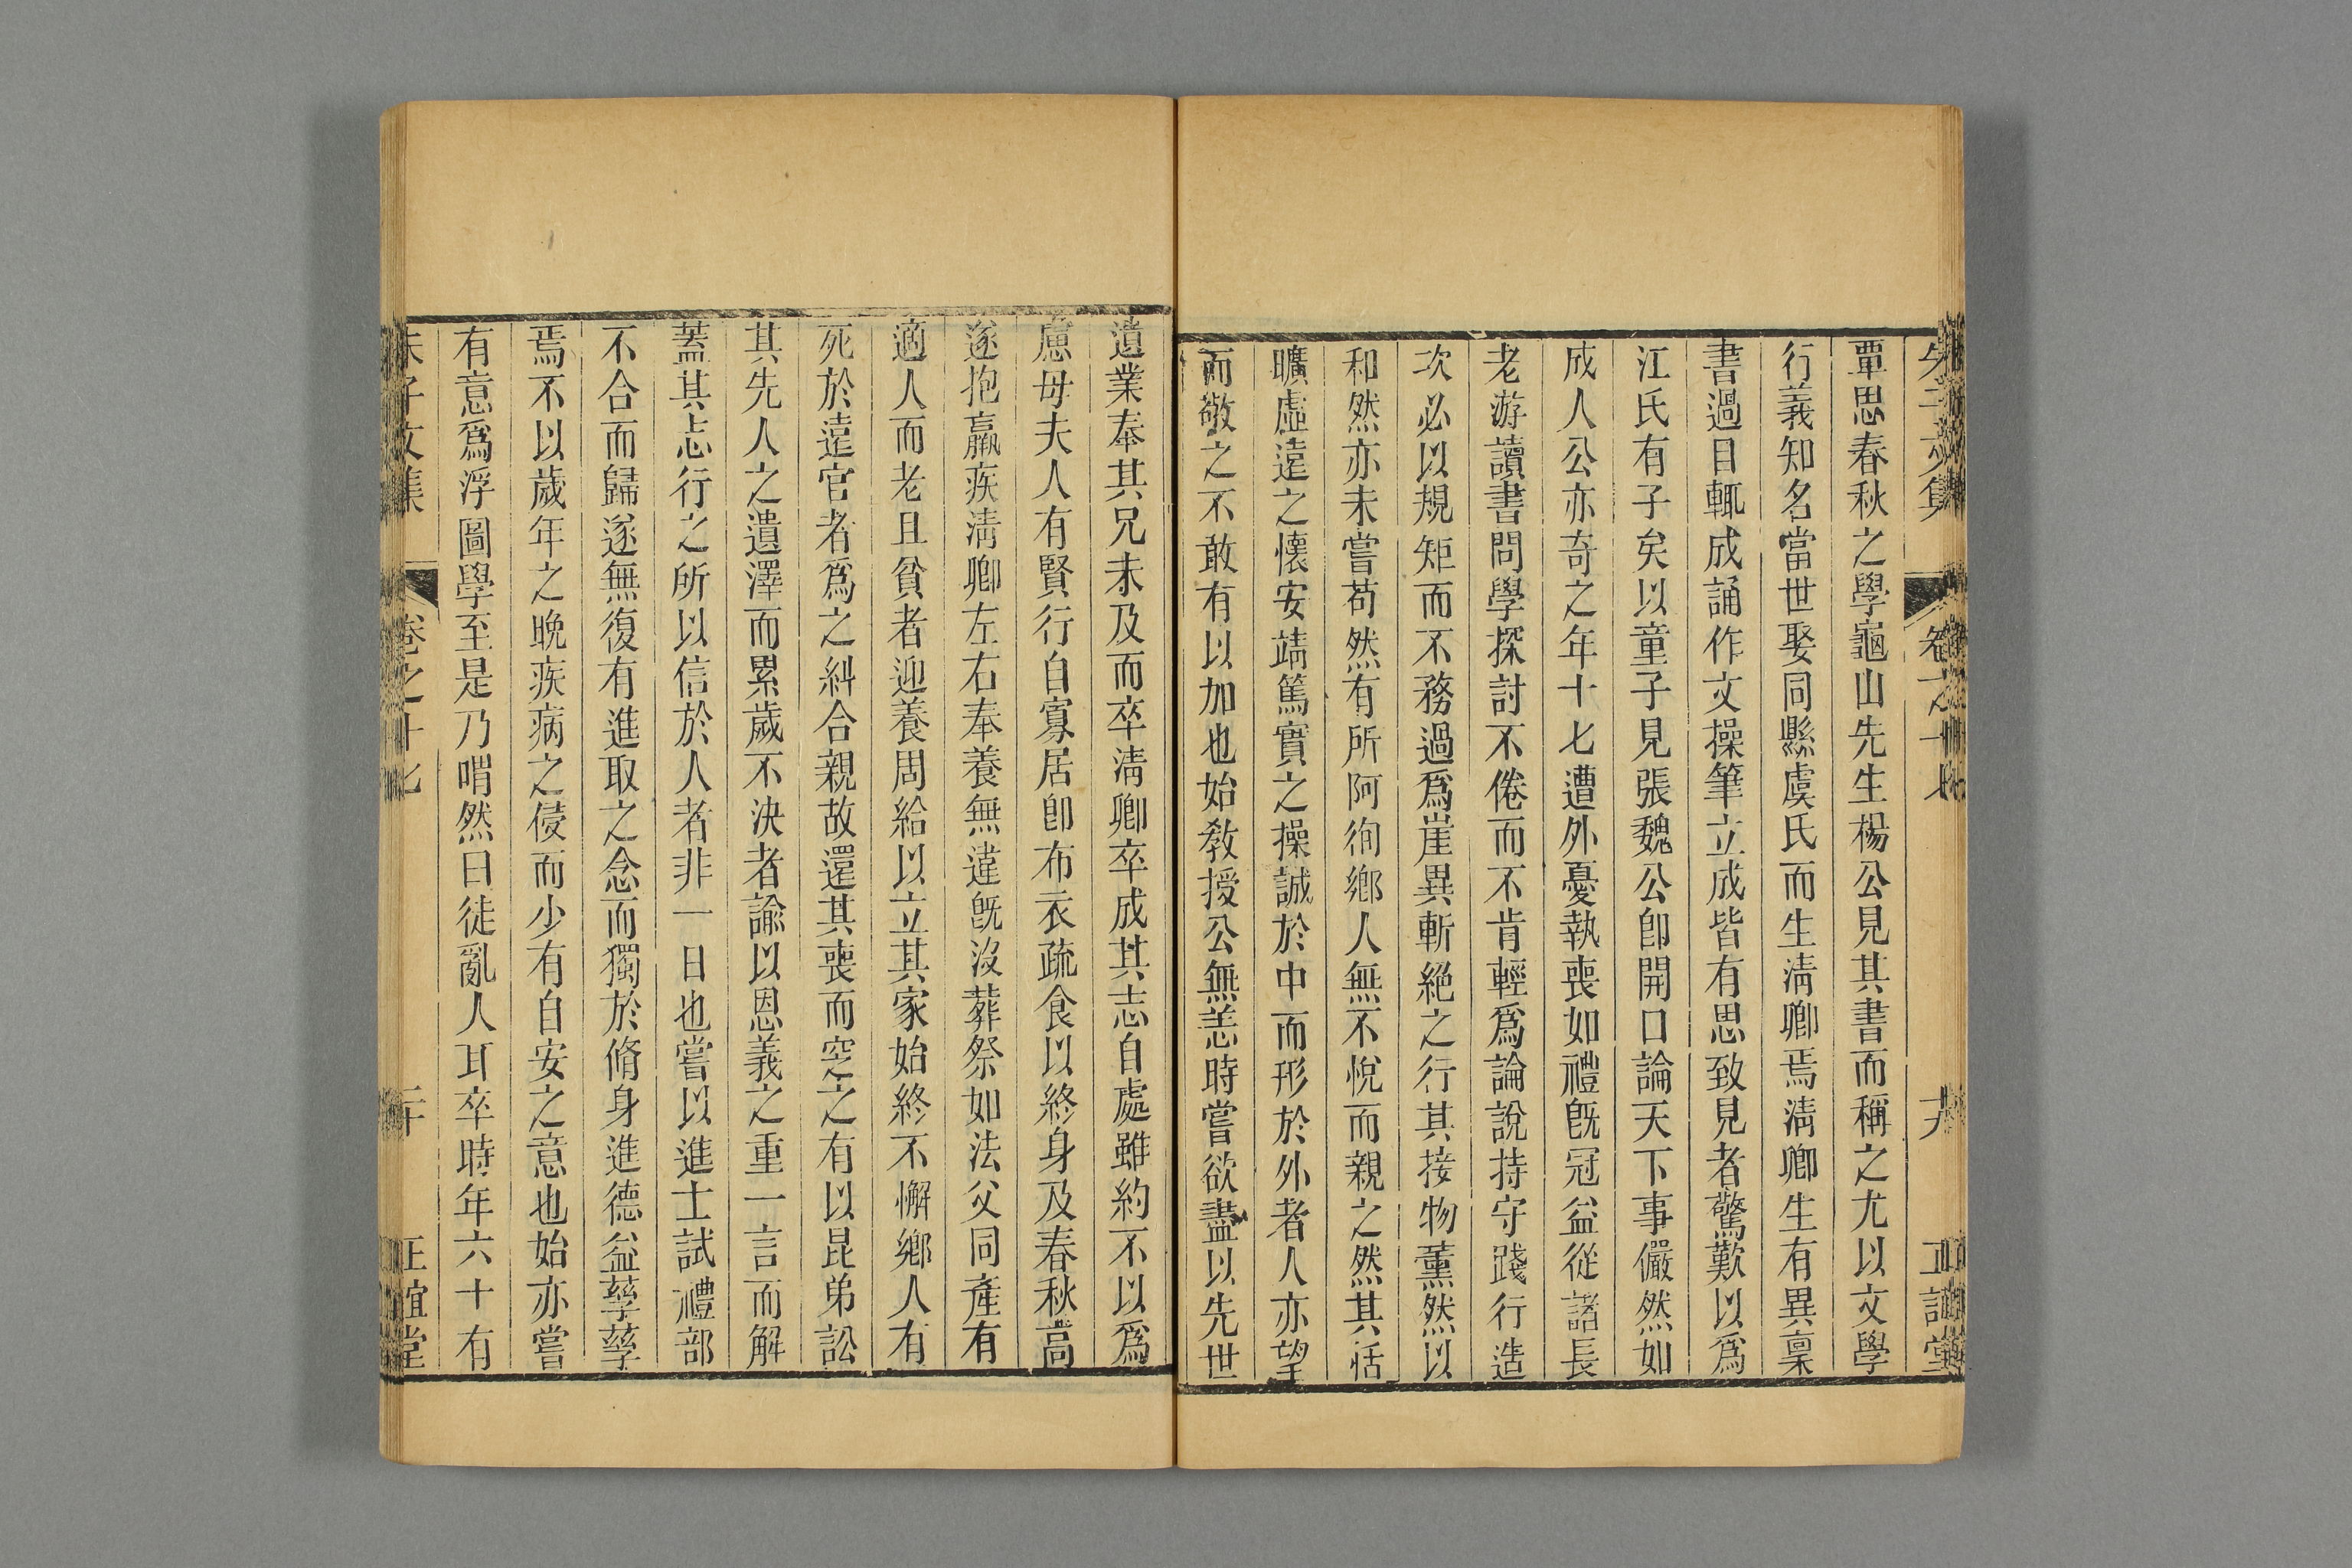 朱子文集 卷之十七 十九 正誼堂
覃思春秋之學龜山先生楊公見其書而稱之尤以文學
行義知名當世娶同縣虞氏而生淸卿焉淸卿生有異稟
書過目輒成誦作文操筆立成皆有思致見者驚歎以爲
江氏有子矣以童子見張魏公卽開口論天下事儼然如
成人公亦奇之年十七遭外憂執喪如禮旣冠益從諸長
老游讀書問學探討不倦而不肯輕爲論說持守踐行造
次必以規矩而不務過爲崖異斬絕之行其接物薰然以
和然亦未嘗苟然有所阿徇鄉人無不悅而親之然其恬
曠虛遠之懷安靖篤實之操誠於中而形於外者人亦望
而敬之不敢有以加也始敎授公無恙時嘗欲盡以先世
遺業奉其兄未及而卒淸卿卒成其志自處雖約不以爲
慮母夫人有賢行自寡居卽布衣疏食以終身及春秋高
遂抱羸疾淸卿左右奉養無違旣沒葬祭如法父同產有
適人而老且貧者迎養周給以立其家始終不懈鄉人有
死於遠官者爲之糾合親故還其喪而窆之有以昆弟訟
其先人之遺澤而累歲不決者諭以恩義之重一言而解
蓋其志行之所以信於人者非一日也嘗以進士試禮部
不合而歸遂無復有進取之念而獨於脩身進德益孳孳
焉不以歲年之晚疾病之侵而少有自安之意也始亦嘗
有意爲浮圖學至是乃喟然曰徒亂人耳卒時年六十有
朱子文集 卷之十七 二十 正誼堂